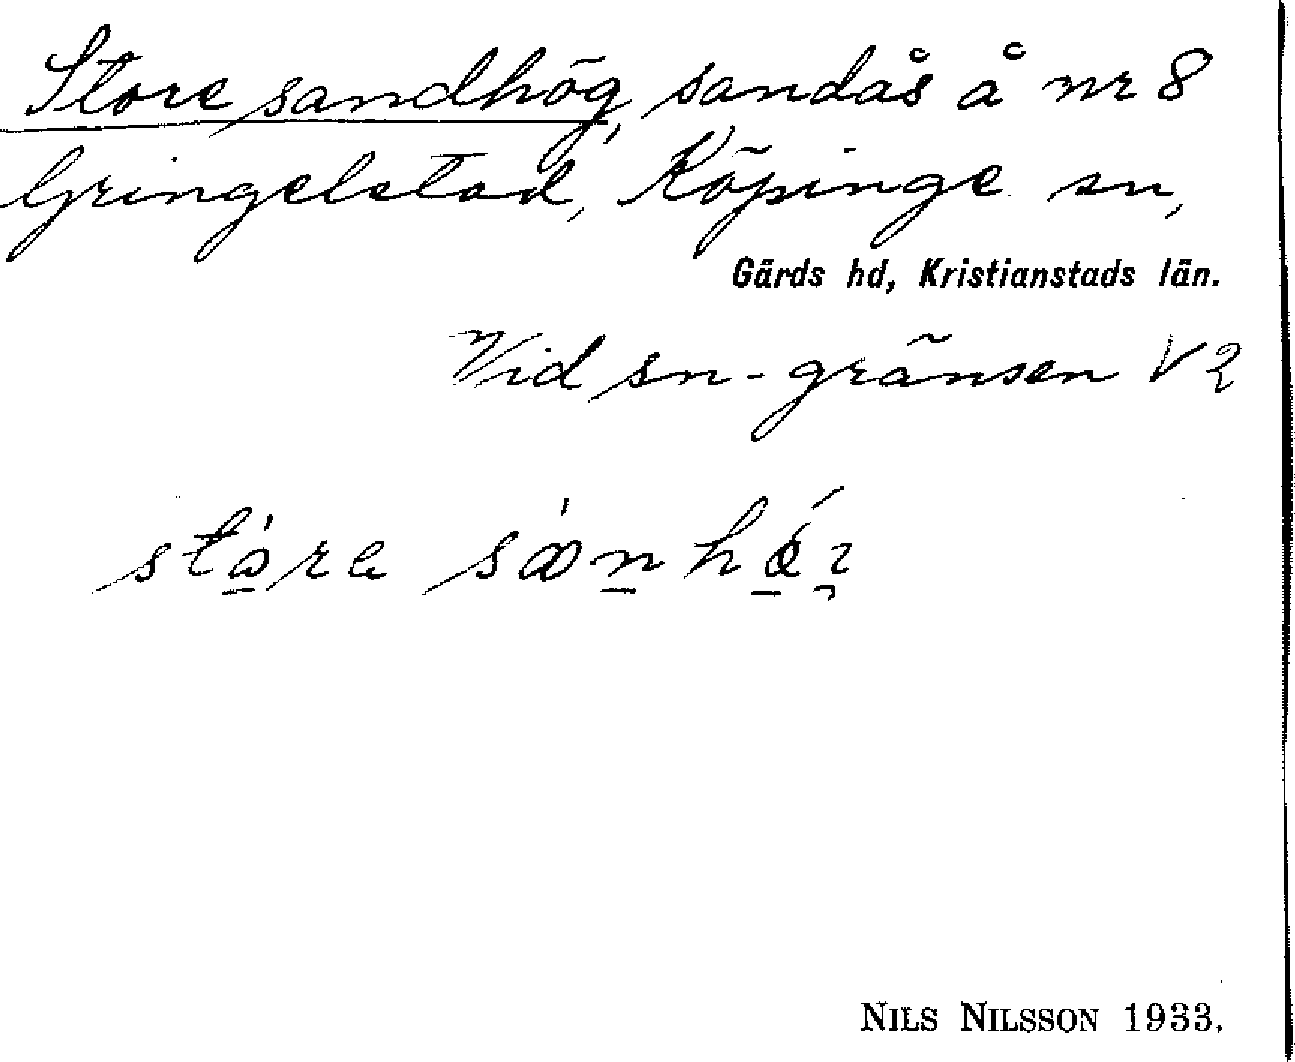 Store sandhög, sandås å nr 8
Gringelstad, Köpinge sn,
Gärds hd, Kristianstads län.
Vid sn-gränsen V 2
NILS NILSSON 1933.